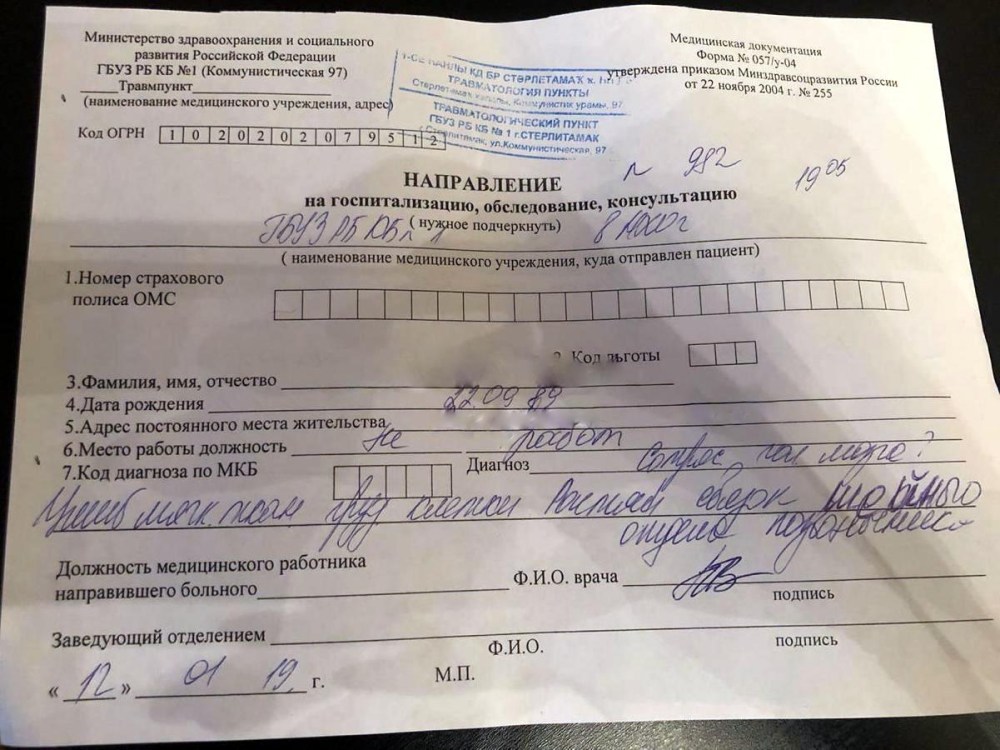 Министерство здравоохранения и социального
развития Российской Федерации
ГБУЗ РБ КБ №1 (Коммунистическая 97)
Травмпункт
(наименование медицинского учреждения, адрес)
Код ОГРН 1020202079512
КД БР СТӘРЛЕТАМАҠ ҡ.
ТРАВМАТОЛОГИЯ ПУНКТЫ
урамы, 97
ТРАВМАТОЛОГИЧЕСКИЙ ПУНКТ
ГБУЗ РБ КБ № 1 г.СТЕРЛИТАМАК
г.Стерлитамак, ул.Коммунистическая, 97
Медицинская документация
Форма № 057/у-04
утверждена приказом Минздравсоцразвития России
от 22 ноября 2004 г. № 255
№ 982 19 05
НАПРАВЛЕНИЕ
на госпитализацию, обследование, консультацию
( нужное подчеркнуть)
ГБУЗ РБ КБ № 1
( наименование медицинского учреждения, куда отправлен пациент)
1.Номер страхового
полиса ОМС
2. Код льготы
3.Фамилия, имя, отчество
4.Дата рождения 22 09 89
5.Адрес постоянного места жительства
6.Место работы должность не работ
7.Код диагноза по МКБ Диагноз Сотряс. гол мозга?
Ушиб мягк. ткан груд клетки Растяж связок шейного
отдела позвоночника
Должность медицинского работника
направившего больного Ф.И.О. врача
подпись
Заведующий отделением
Ф.И.О. подпись
« 12 » 01 19. г. М.П.